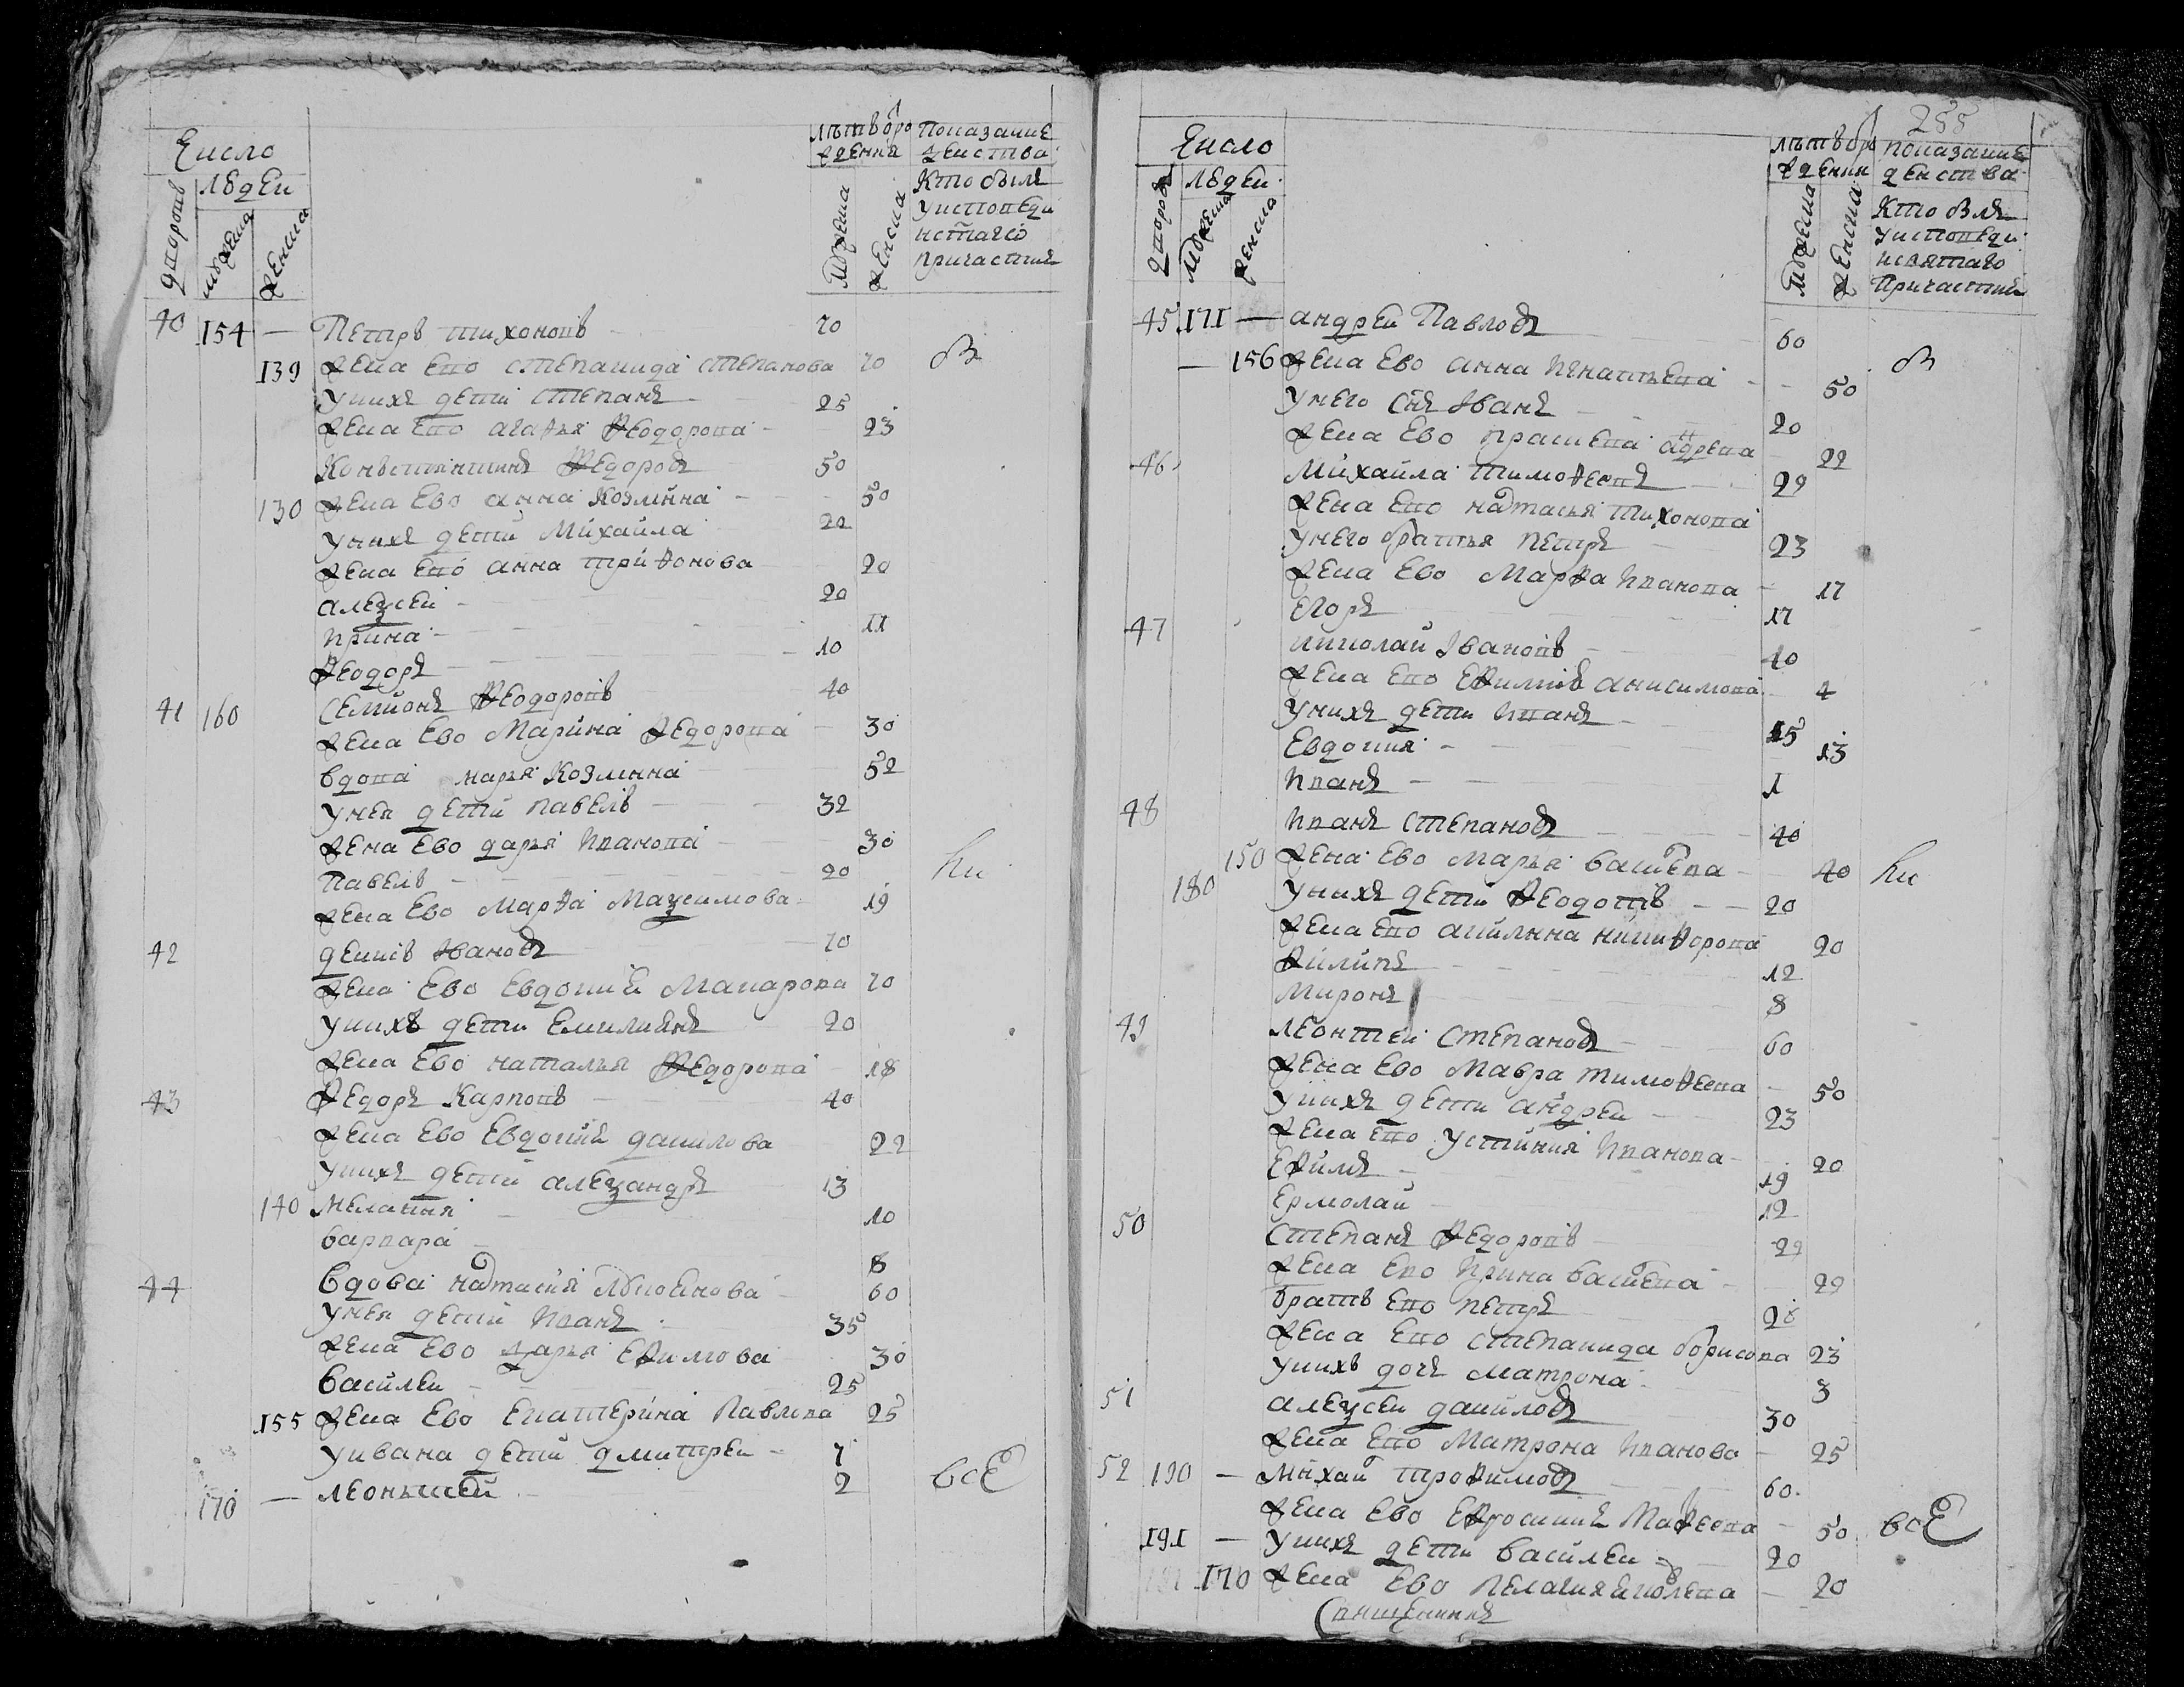 Число
людей
дворовъ
мужеска
женска
лѣтъ от рож
дения
мужеска
женска
Показание
действа
Кто былъ
у исповеди
и стаго
причастия
40 154 — Петръ Тихоновъ 70
139 жена ево Степанида Степанова 70
у нихъ дети Степанъ 25
жена ево Агафья Феодорова 23
Конъстентинъ Федоровъ 50
130 жена ево Анна Козмина 50
у нихъ дети Михайла 20
жена ево Анна Трифонова 20
Алексей 20
Ирина 11
Феодоръ 10
41 160 Семионъ Феодоровъ 40
жена ево Марина Федорова 30
вдова Марья Козмина 52
у нея дети Павелъ 32
жена ево Дарья Иванова 30
Павелъ 20
жена ево Марфа Максимова 19
42 Денисъ Ивановъ 70
жена ево Евдокия Макарова 70
у нихъ дети Емилиянъ 20
жена ево Наталья Федорова 18
43 Федоръ Карповъ 40
жена ево Евдокия Данилова 22
у нихъ дети Александръ 13
140 Мелания 10
Варвара 8
44 Вдова Настасия 60
у нея дети Иванъ 35
жена ево Дарья Ефимова 30
Василеи 25
155 жена ево Екатерина Павлова 25
у Ивана дети Дмитреи 7
170 — Леонътей 2
всЕ
255
Число
людеи
дворовъ
мужеска
женска
лѣтъ от ро
ждении
мужеска
женска
показание
действа
Кто былъ
у исповеди
и святаго
Причастия
45 171 — Андреи Павловъ 60
— 156 жена ево Анна Игнатьева 50
у него снъ Иванъ 20
жена ево Прасковья Андреева 22
46 Михайла Тимофеевъ 29
жена ево Настасья Тихонова
у него братья Петръ 23
жена ево Марфа Иванова 17
Егоръ 17
47 Николай Ивановъ 40
жена ево Анисимова 4
у нихъ дети Иванъ 15
Евдокия 13
Иванъ 1
48 Иванъ Степановъ 40
150 жена ево Марья Васильева 40
180 у нихъ дети Феодотъ 20
жена ево Акилина Никифорова 20
Филипъ 12
Миронъ 8
49 Леонтей Степановъ 60
жена ево Мавра Тимофеева 50
у нихъ дети Андреи 23
жена ево Устиния Иванова 20
Ефимъ 19
Ермолай 12
50 Степанъ Федоровъ 29
жена ево Ирина Васильева 29
братъ ево Петръ 28
жена ево Степанида Борисова 23
у нихъ дочь Матрона 3
51 Алексеи Даниловъ 30
жена ево Матрона Иванова 25
52 190 — Михайло Трофимовъ 60
жена ево Ефросиния Мафеева 50
всЕ
191 — у нихъ дети Василеи 20
170 жена ево Пелагия 20
Священникъ